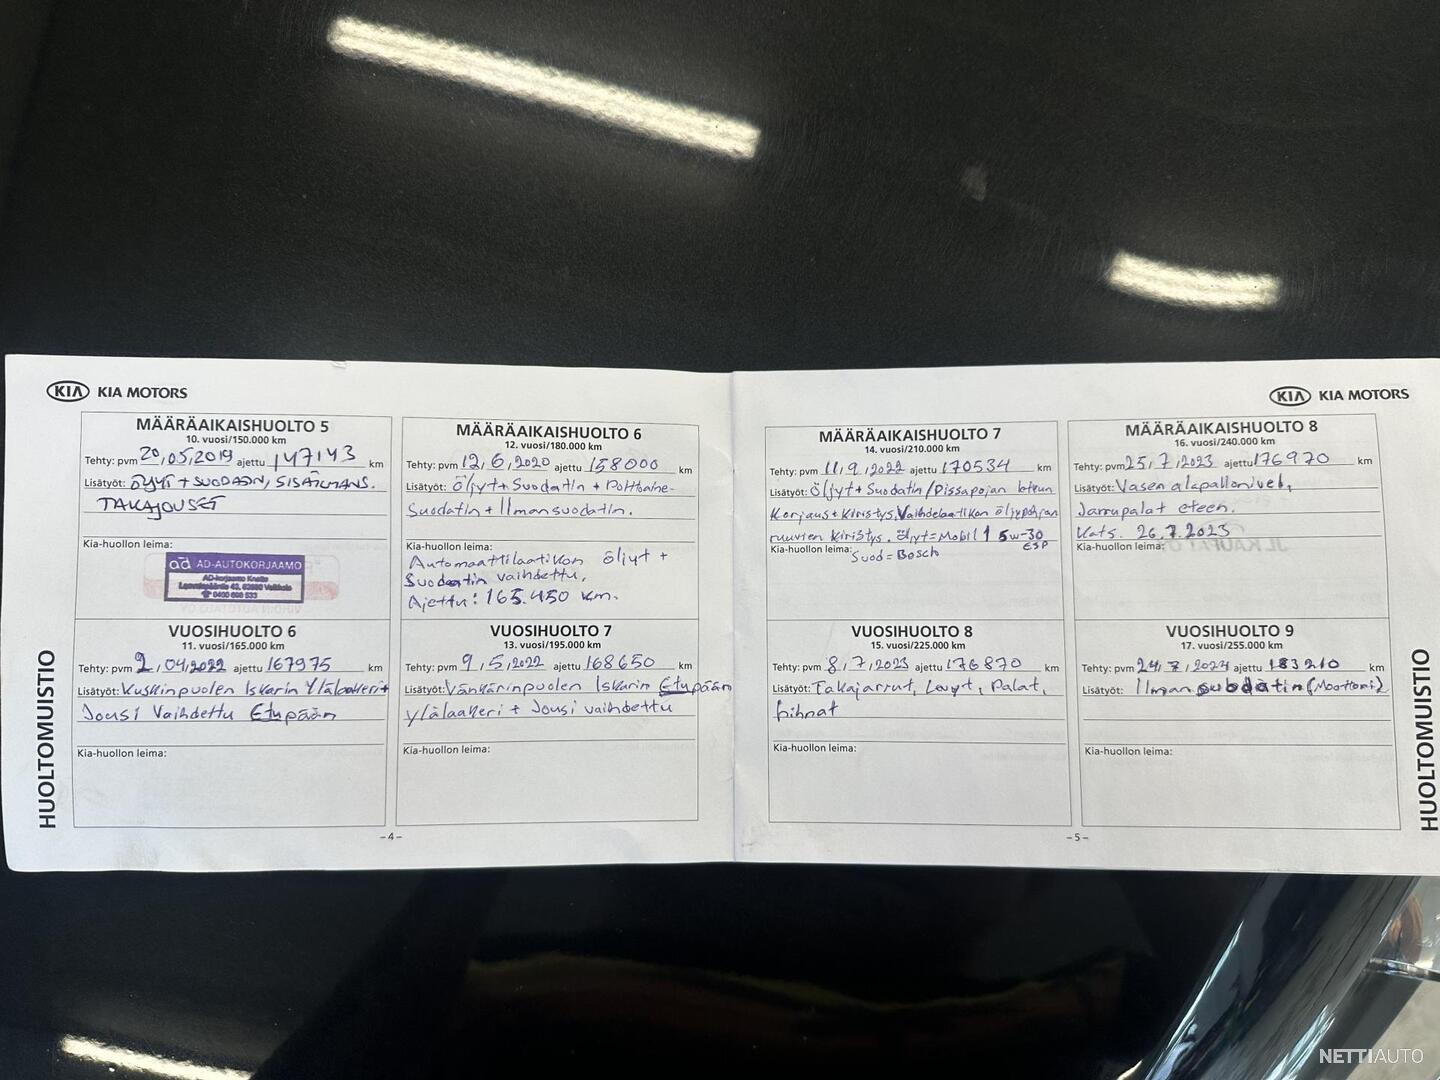 KIA KIA MOTORS
MÄÄRÄAIKAISHUOLTO 5
10. vuosi/150.000 km
Tehty: pvm 20,05,2019 ajettu 147143 km
Lisätyöt: ÖLJYT + SUODATIN, SISÄILMANS.
TAKAJOUSET
Kia-huollon leima:
ad AD-AUTOKORJAAMO
AD-korjaamo
0400 698 533
MÄÄRÄAIKAISHUOLTO 6
12. vuosi/180.000 km
Tehty: pvm 12,6,2020 ajettu 158000 km
Lisätyöt: Öljyt + Suodatin + Polttoaine-
Suodatin + Ilmansuodatin.
Kia-huollon leima:
Automaattilaatikon öljyt +
Suodatin vaihdettu,
Ajettu: 165.450 km.
VUOSIHUOLTO 6
11. vuosi/165.000 km
Tehty: pvm 2,04,2022 ajettu 167975 km
Lisätyöt: Kuskinpuolen Iskarin Ylälaakeri+
Jousi Vaihdettu Etupään
Kia-huollon leima:
VUOSIHUOLTO 7
13. vuosi/195.000 km
Tehty: pvm 9,5,2022 ajettu 168650 km
Lisätyöt: Vänkärinpuolen Iskarin Etupään
Ylälaakeri + Jousi vaihdettu
Kia-huollon leima:
HUOLTOMUISTIO
-4-
KIA KIA MOTORS
MÄÄRÄAIKAISHUOLTO 7
14. vuosi/210.000 km
Tehty: pvm 11,9,2022 ajettu 170534 km
Lisätyöt: Öljyt + Suodatin/Pissapojan letkun
Korjaus + Kiristys, Vaihdelaatikon öljypohjan
ruuvien kiristys. Öljyt=Mobil 1 5w-30
ESP
Kia-huollon leima: Suod=Bosch
MÄÄRÄAIKAISHUOLTO 8
16. vuosi/240.000 km
Tehty: pvm 25,7,2023 ajettu 176970 km
Lisätyöt: Vasen alapallonivel,
Jarrupalat eteen.
Kats. 26.7.2023
Kia-huollon leima:
VUOSIHUOLTO 8
15. vuosi/225.000 km
Tehty: pvm 8,7,2023 ajettu 176870 km
Lisätyöt: Takajarrut, Levyt, Palat,
hihnat
Kia-huollon leima:
VUOSIHUOLTO 9
17. vuosi/255.000 km
Tehty: pvm 24,7,2024 ajettu 183210 km
Lisätyöt: Ilmansuodatin (Moottori)
Kia-huollon leima:
HUOLTOMUISTIO
-5-
NETTIAUTO